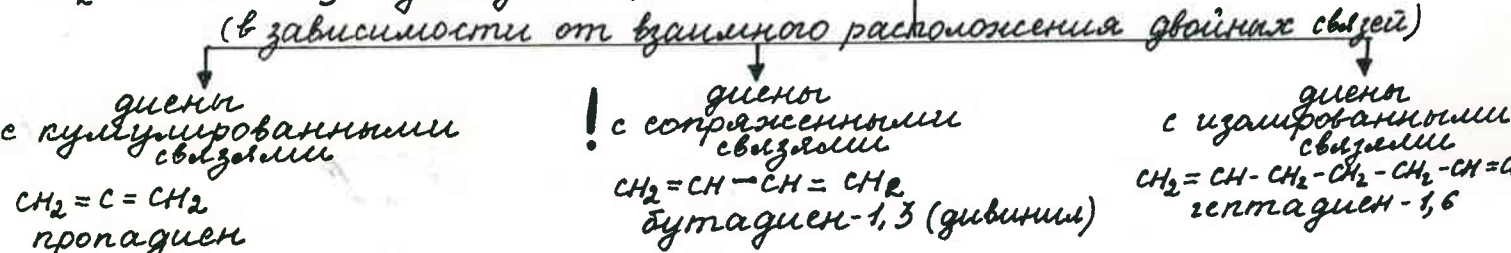 (в зависимости от взаимного расположения двойных связей)
диены
с кумулированными
связями
CH2 = C = CH2
пропадиен
! диены
с сопряженными
связями
CH2 = CH – CH = CH2
бутадиен-1,3 (дивинил)
диены
с изолированными
связями
CH2 = CH - CH2 - CH2 - CH2 - CH = C
гептадиен - 1,6